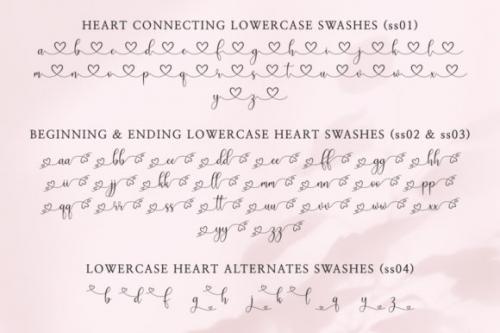 HEART CONNECTING LOWERCASE SWASHES (ss01)
a b c d e f g h i j k l
m n o p q r s t u v w x
y z
BEGINNING & ENDING LOWERCASE HEART SWASHES (ss02 & ss03)
aa bb cc dd ee ff gg hh
ii jj kk ll mm nn oo pp
qq rr ss tt uu vv ww xx
yy zz
LOWERCASE HEART ALTERNATES SWASHES (ss04)
b d f g h j k l q y z